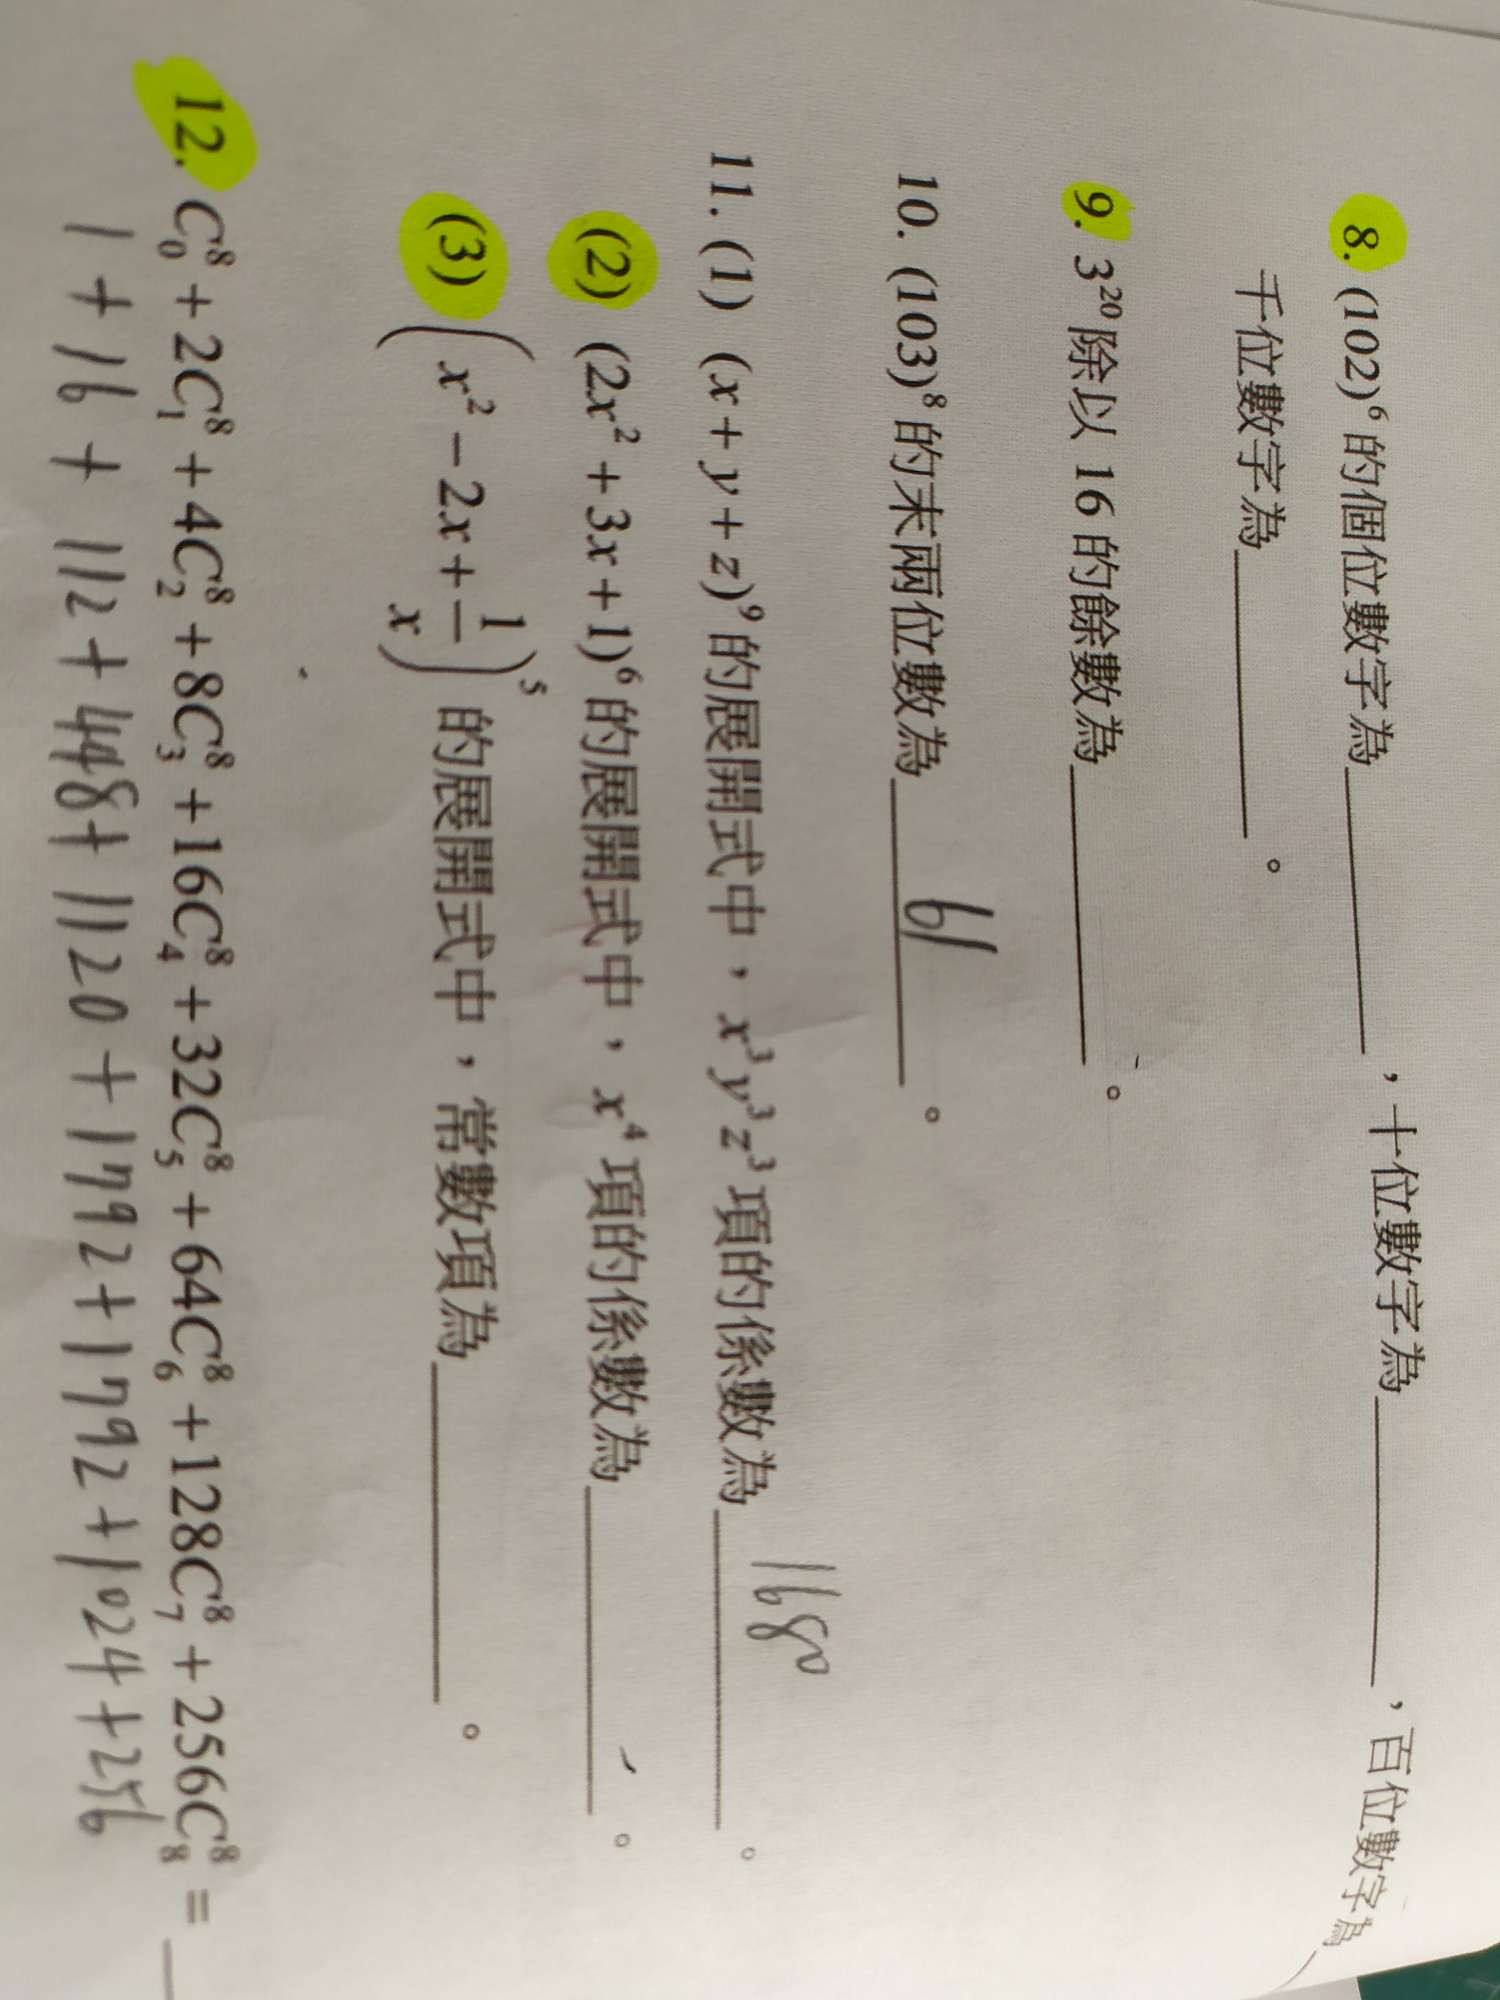 8. (102)⁶ 的個位數字為______，十位數字為______，百位數字為
千位數字為______。
9. 3²⁰ 除以 16 的餘數為______。
10. (103)⁸ 的末兩位數為 61 。
11. (1) (x+y+z)⁹ 的展開式中，x³y³z³ 項的係數為 1680 。
(2) (2x²+3x+1)⁶ 的展開式中，x⁴ 項的係數為______。
(3) (x²−2x+1/x)⁵ 的展開式中，常數項為______。
12. C⁸₀+2C⁸₁+4C⁸₂+8C⁸₃+16C⁸₄+32C⁸₅+64C⁸₆+128C⁸₇+256C⁸₈=
1+16+112+448+1120+1792+1792+1024+256